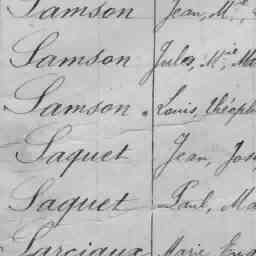 Samson Jean, M
Samson Jules, Mie Ma
Samson Louis, Théoph
Saquet Jean, Jos
Saquet Paul, Ma
Sarciaux Marie